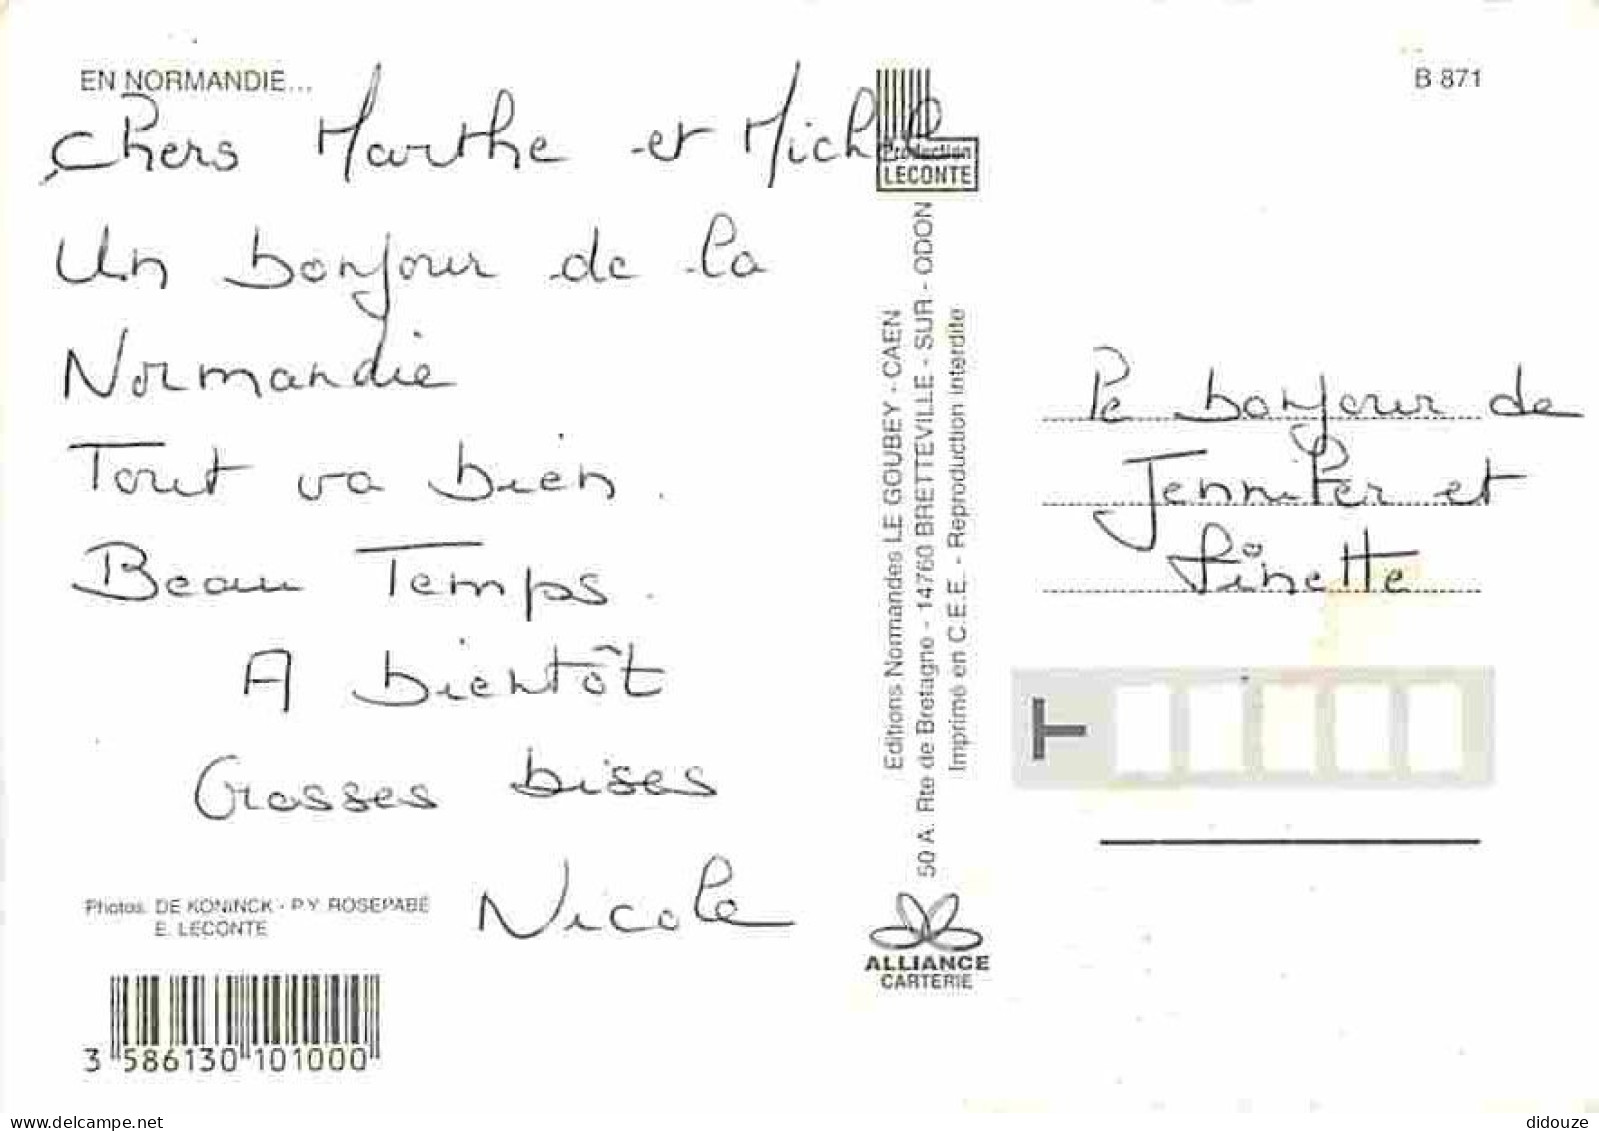 EN NORMANDIE...
B 871
Chers Marthe et Michel
Un bonjour de la
Normandie
Tout va bien.
Beau Temps.
A bientôt
Grosses bises
Nicole
Photos. DE KONINCK - P.Y. ROSEPABÉ
E. LECONTE
3 586130 101000
Production
LECONTE
Editions Normandes LE GOUBEY - CAEN
50 A. Rte de Bretagne - 14760 BRETTEVILLE - SUR - ODON
Imprimé en C.E.E. - Reproduction interdite
ALLIANCE
CARTERIE
Pe bonjour de
Jennifer et
Finette
T
delcampe.net
didouze